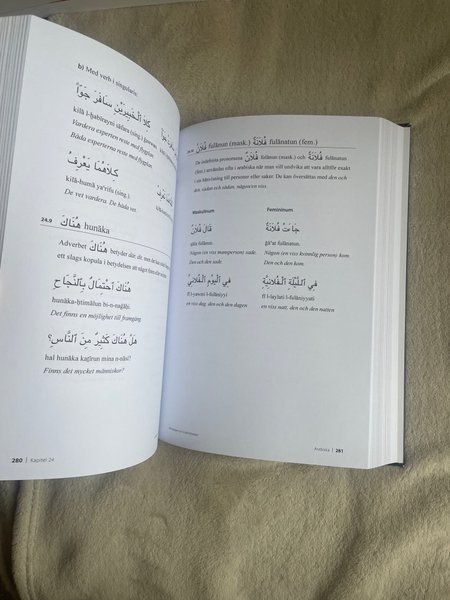 b) Med verb i singularis:
كِلَا ٱلْخَبِيرَيْنِ سَافَرَ جَوًّا
kilā l-ḫabīrayni sāfara (sing.) ǧawwan
Vardera experten reste med flygplan.
Båda experterna reste med flygplan.
كِلَاهُمَا يَعْرِفُ
kilā-humā yaʿrifu (sing.)
De vet vardera. De båda vet.
24.9 هُنَاكَ hunāka
Adverbet هُنَاكَ betyder där, dit, men
ett slags kopula i betydelsen att något
هُنَاكَ ٱحْتِمَالٌ بِٱلنَّجَاحِ
hunāka-ḥtimālun bi-n-naǧāḥi
Det finns en möjlighet till framgång.
هَلْ هُنَاكَ كَثِيرٌ مِنَ ٱلنَّاسِ؟
hal hunāka kaṯīrun mina n-nāsi?
Finns det mycket människor?
280 | Kapitel 24
فُلَانٌ fulānun (mask.) فُلَانَةٌ fulānatun (fem.)
De indefinita pronomena فُلَانٌ fulānun (mask.) och فُلَانَةٌ fulānatun
(fem.) användas ofta i arabiska när man vill undvika att vara alltför exakt
i sin hänvisning till personer eller saker. De kan översättas med den och
den, sådan och sådan, någon/en viss
Maskulinum Femininum
قَالَ فُلَانٌ جَاءَتْ فُلَانَةٌ
qāla fulānun ǧāʾat fulānatun
Någon (en viss mansperson) sade. Någon (en viss kvinnlig person) kom.
Den och den sade. Den och den kom.
فِي ٱلْيَوْمِ ٱلْفُلَانِيِّ فِي ٱللَّيْلَةِ ٱلْفُلَانِيَّةِ
fī l-yawmi l-fulāniyyi fī l-laylati l-fulāniyyati
en viss dag, den och den dagen en viss natt, den och den natten
| 281